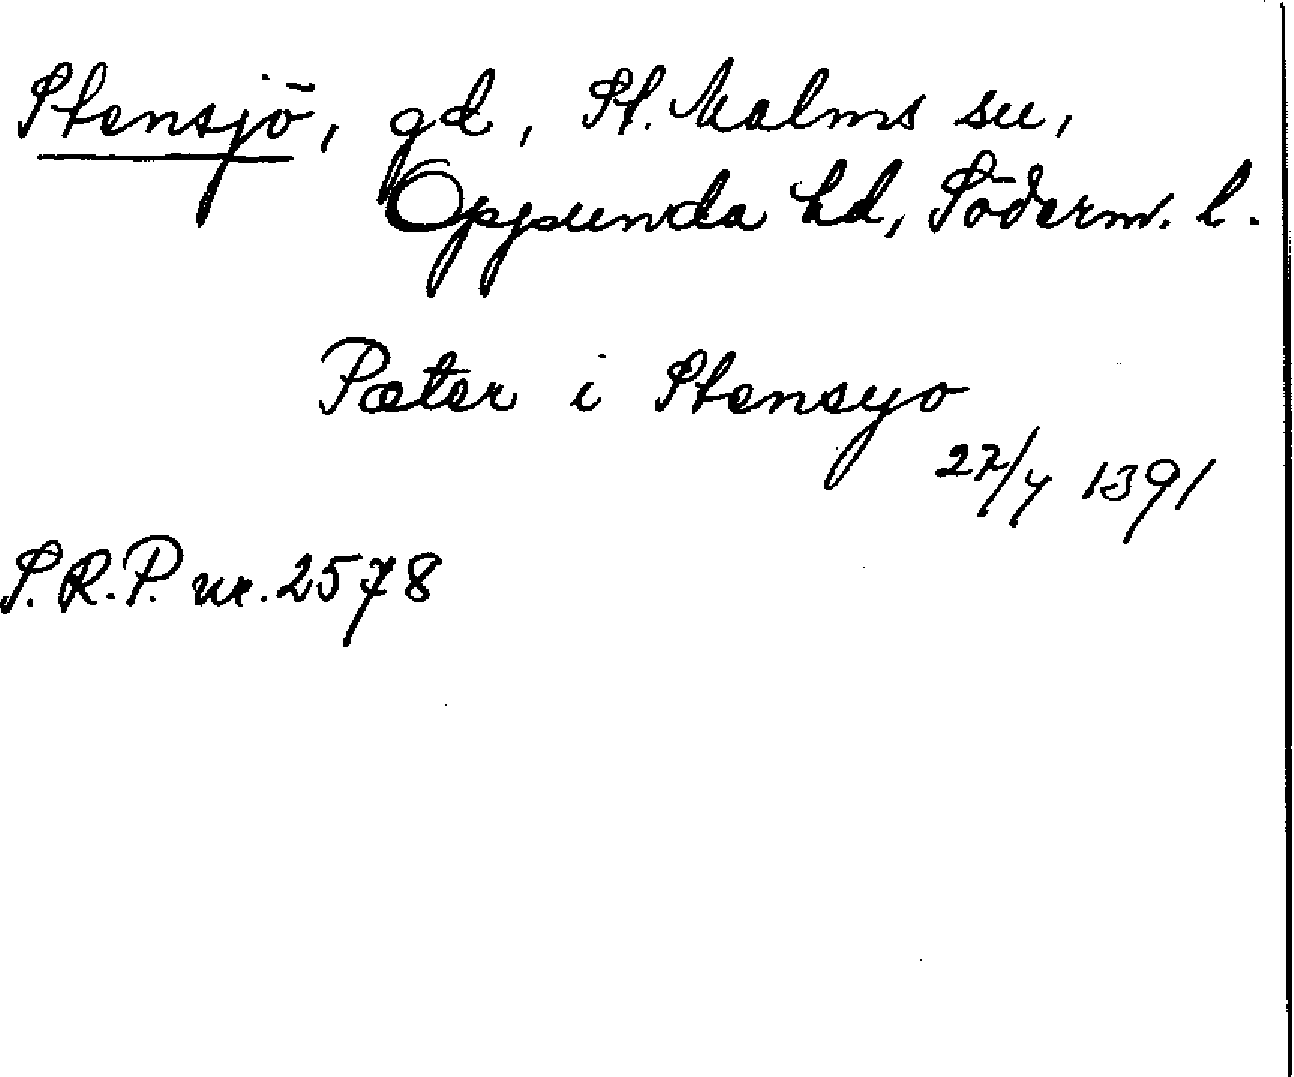 Stensjö, gd, St. Malms sn,
Oppunda hd, Söderm. l.
Pæter i Stensyo
27/4 1391
S.R.P. nr. 2578